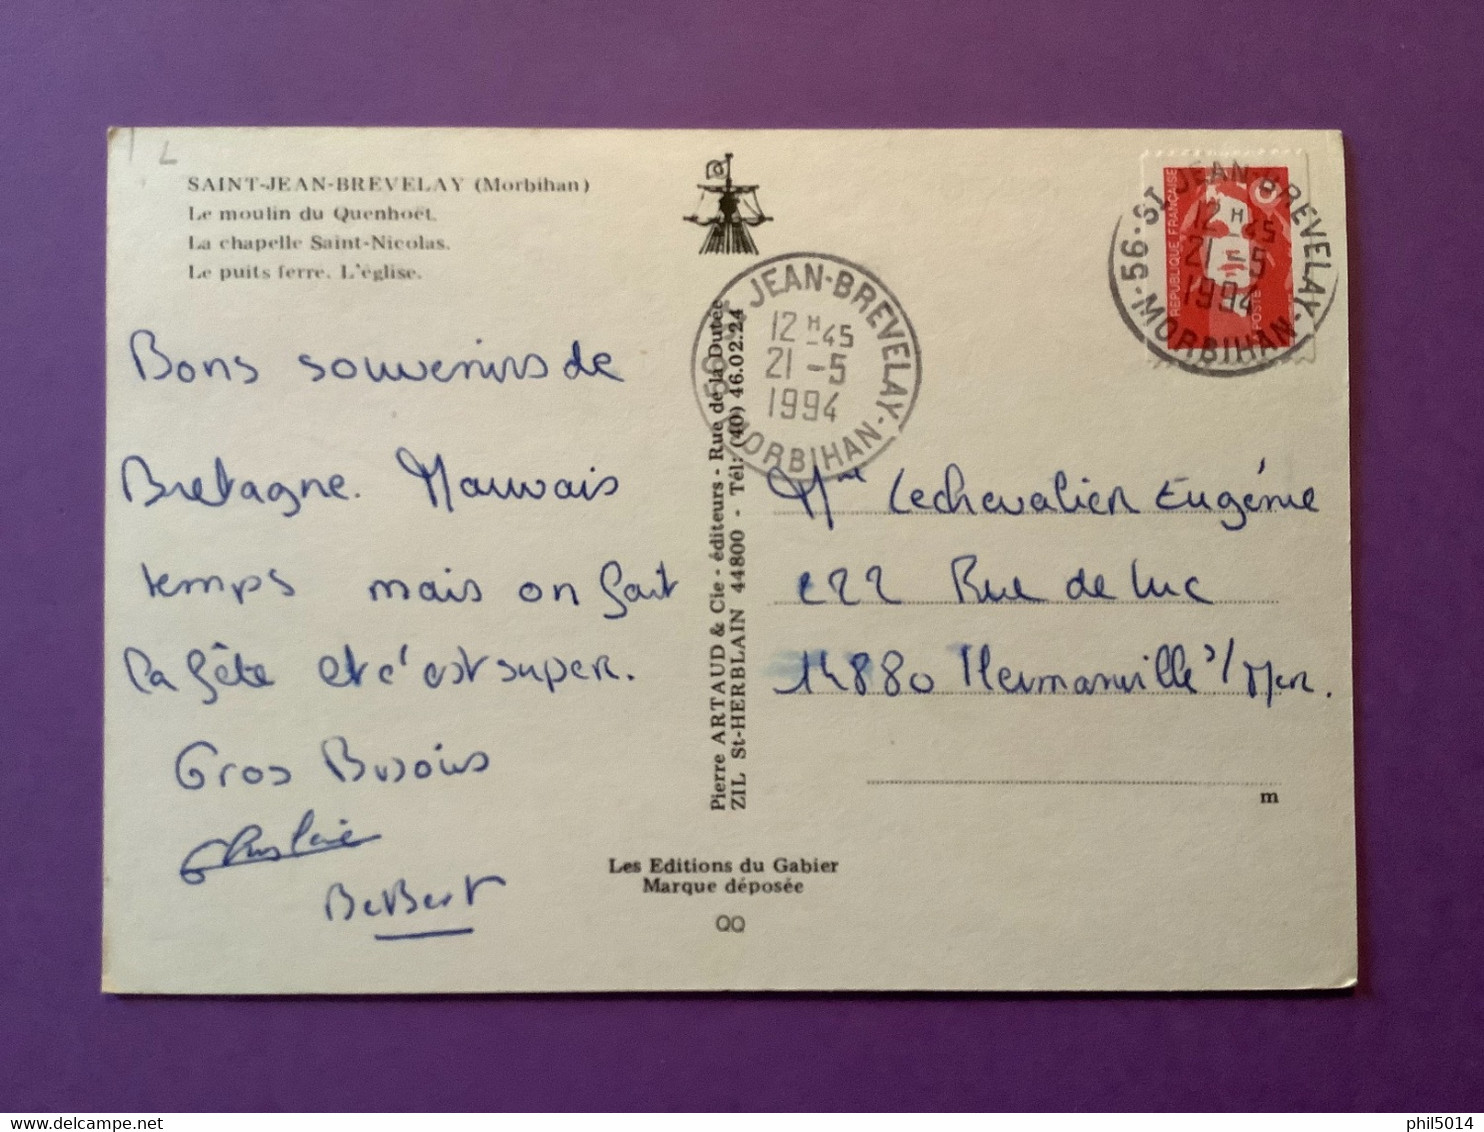 SAINT-JEAN-BREVELAY (Morbihan)
Le moulin du Quenhoët.
La chapelle Saint-Nicolas.
Le puits ferre. L'église.
Bons souvenirs de
Bretagne. Mauvais
temps mais on fait
la fête et c'est super.
Gros Bisous
Ghislaine
BerBert
Pierre ARTAUD & Cie - éditeurs - Rue de la Dutée
ZIL St-HERBLAIN 44800 - Tél: (40) 46.02.24
Les Editions du Gabier
Marque déposée
QQ
ST JEAN-BREVELAY
12 H 45
21 - 5
1994
56 MORBIHAN
RÉPUBLIQUE FRANÇAISE
POSTE
56-ST JEAN-BREVELAY
12 H 45
21 - 5
1994
MORBIHAN
Mme Lechevalier Eugénie
222 Rue de Luc
14880 Hermanville s/Mer.
m
phil5014